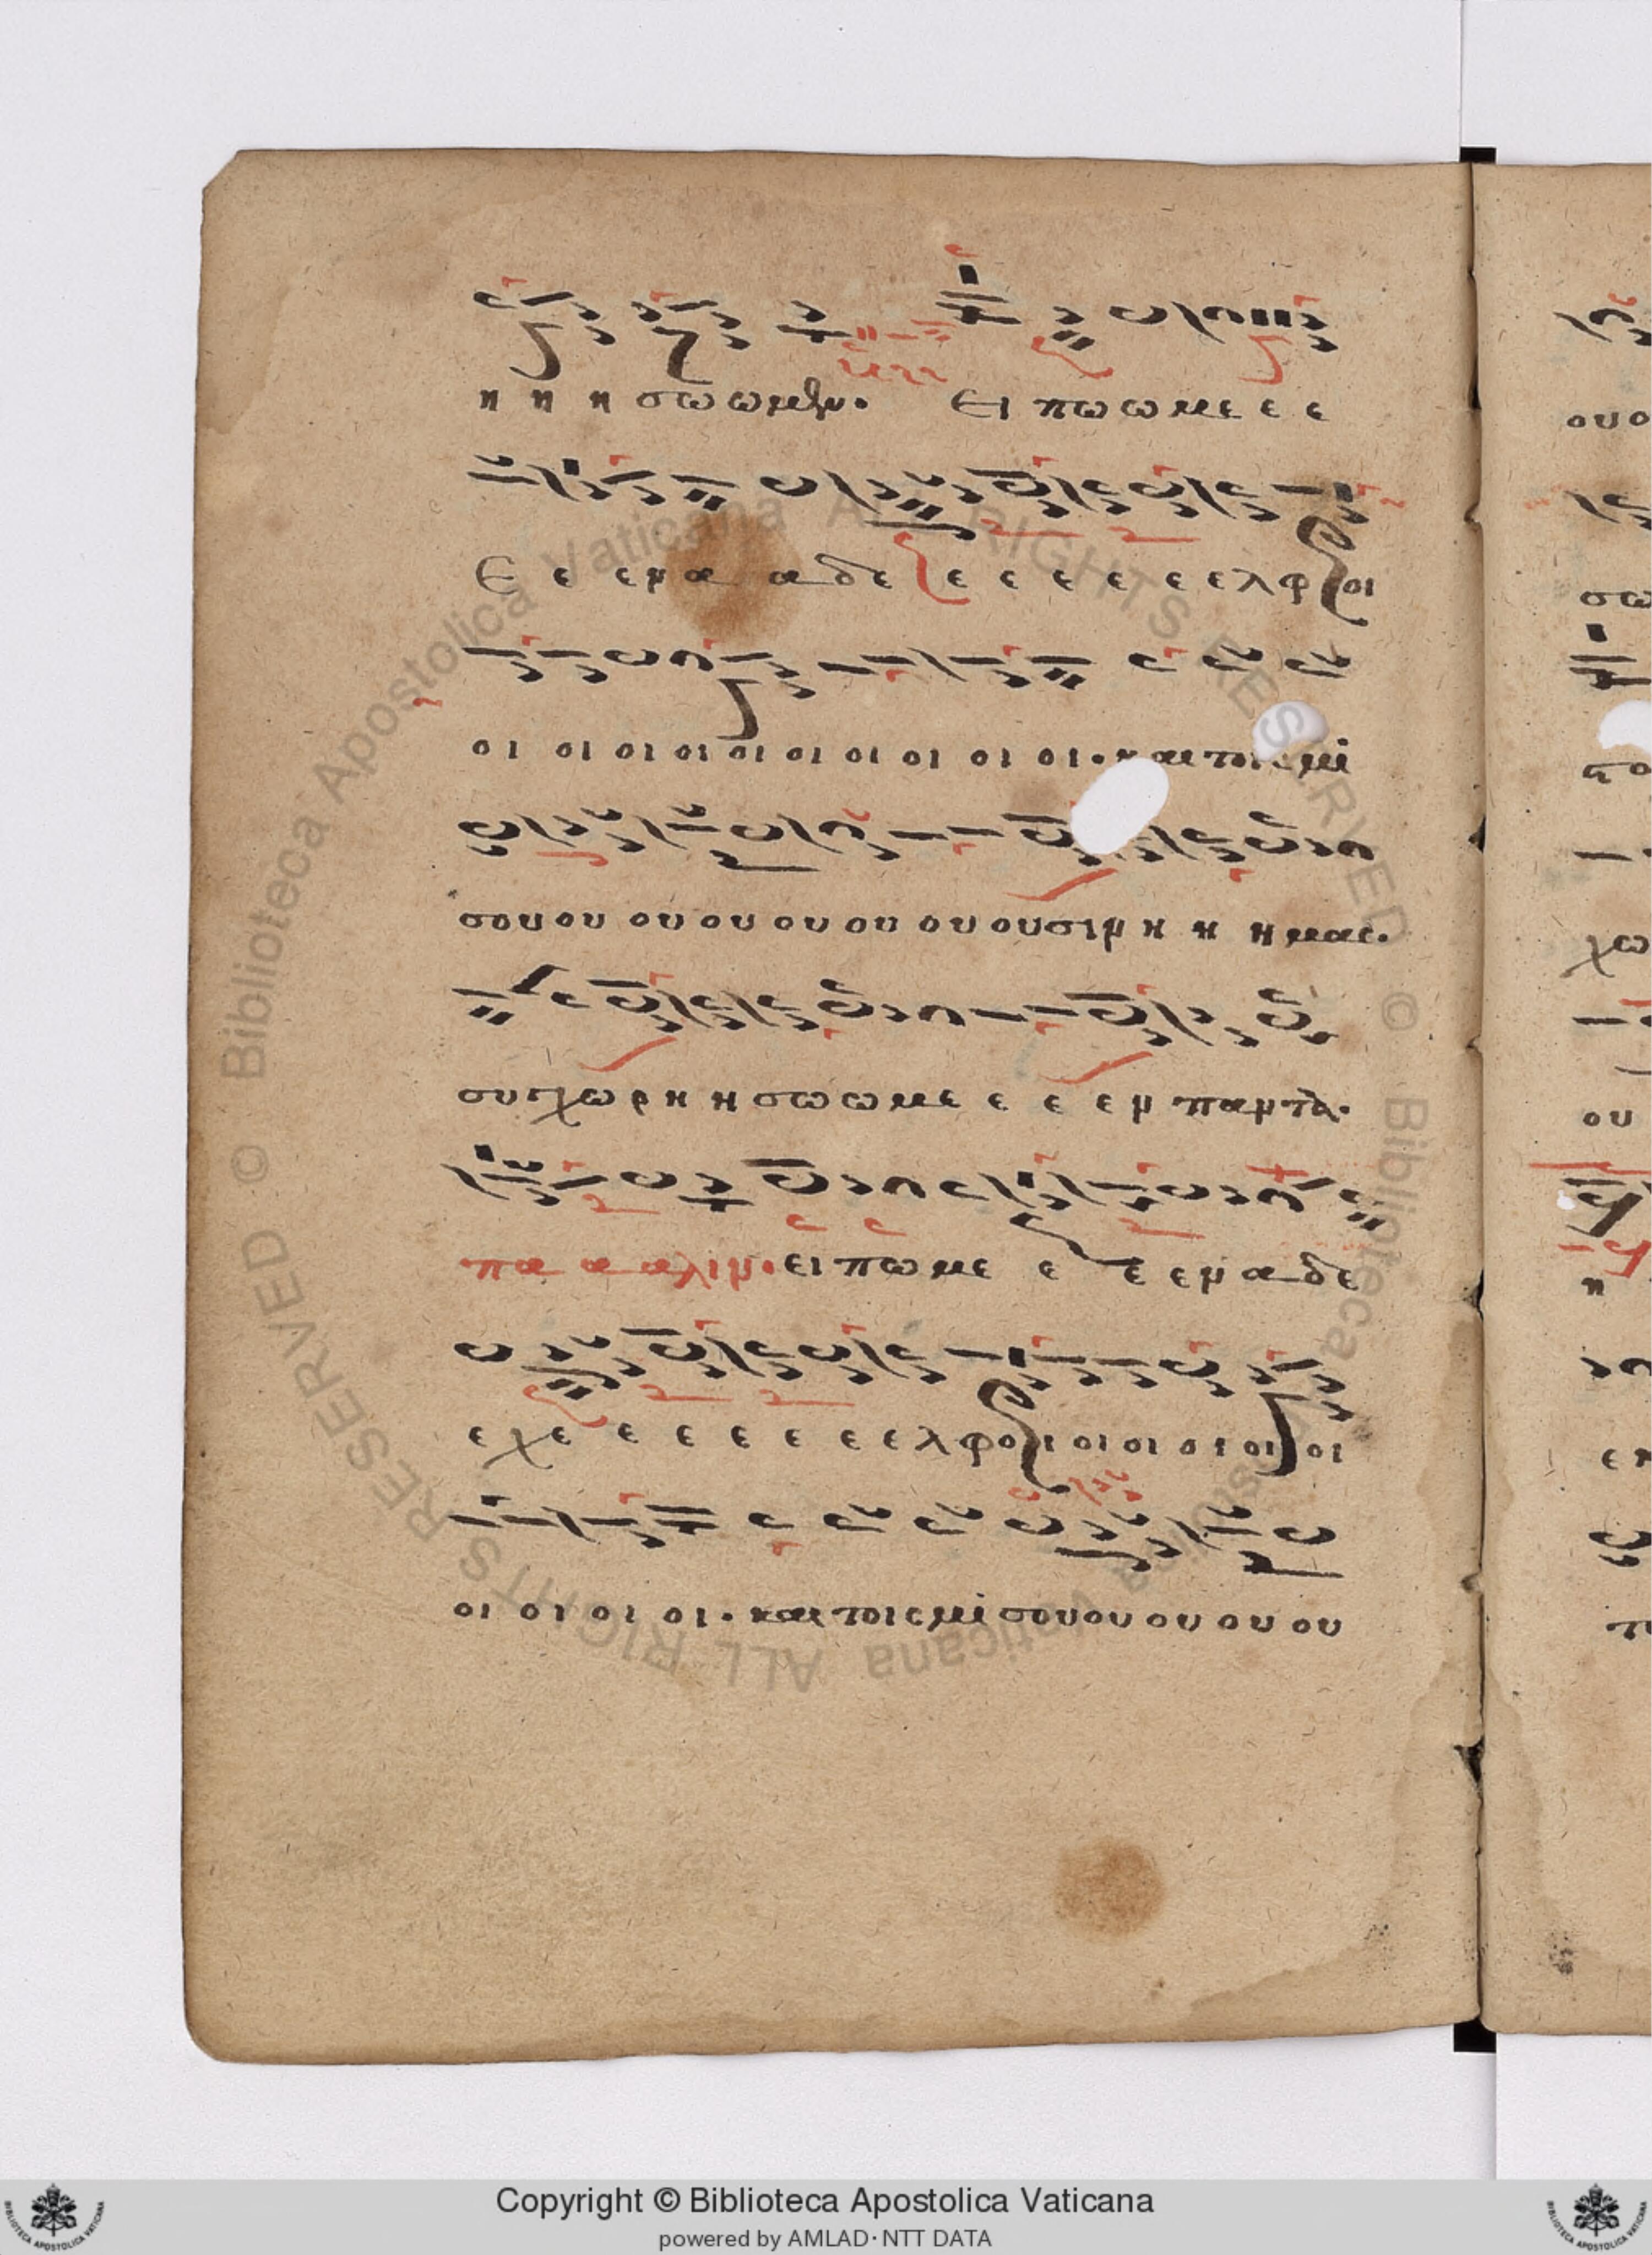 η η η σω ω μεν. Ει πω ω με ε ε
Ε ε εν α α δε ε ε ε ε ε ελφοι
οι οι οι οι οι οι οι οι οι οι. και τοις μι
σου ου ου ου ου ου ου ουσιν η η η μας.
συγχωρη η σω ω με ε ε εν παντα.
πα α αλιν. ει πω με ε ε εν α δε
ε χε ε ε ε ε ε ελφοι οι οι οι οι οι
οι οι οι οι. και τοις μι σου ου ου ου ου
Copyright © Biblioteca Apostolica Vaticana
powered by AMLAD·NTT DATA